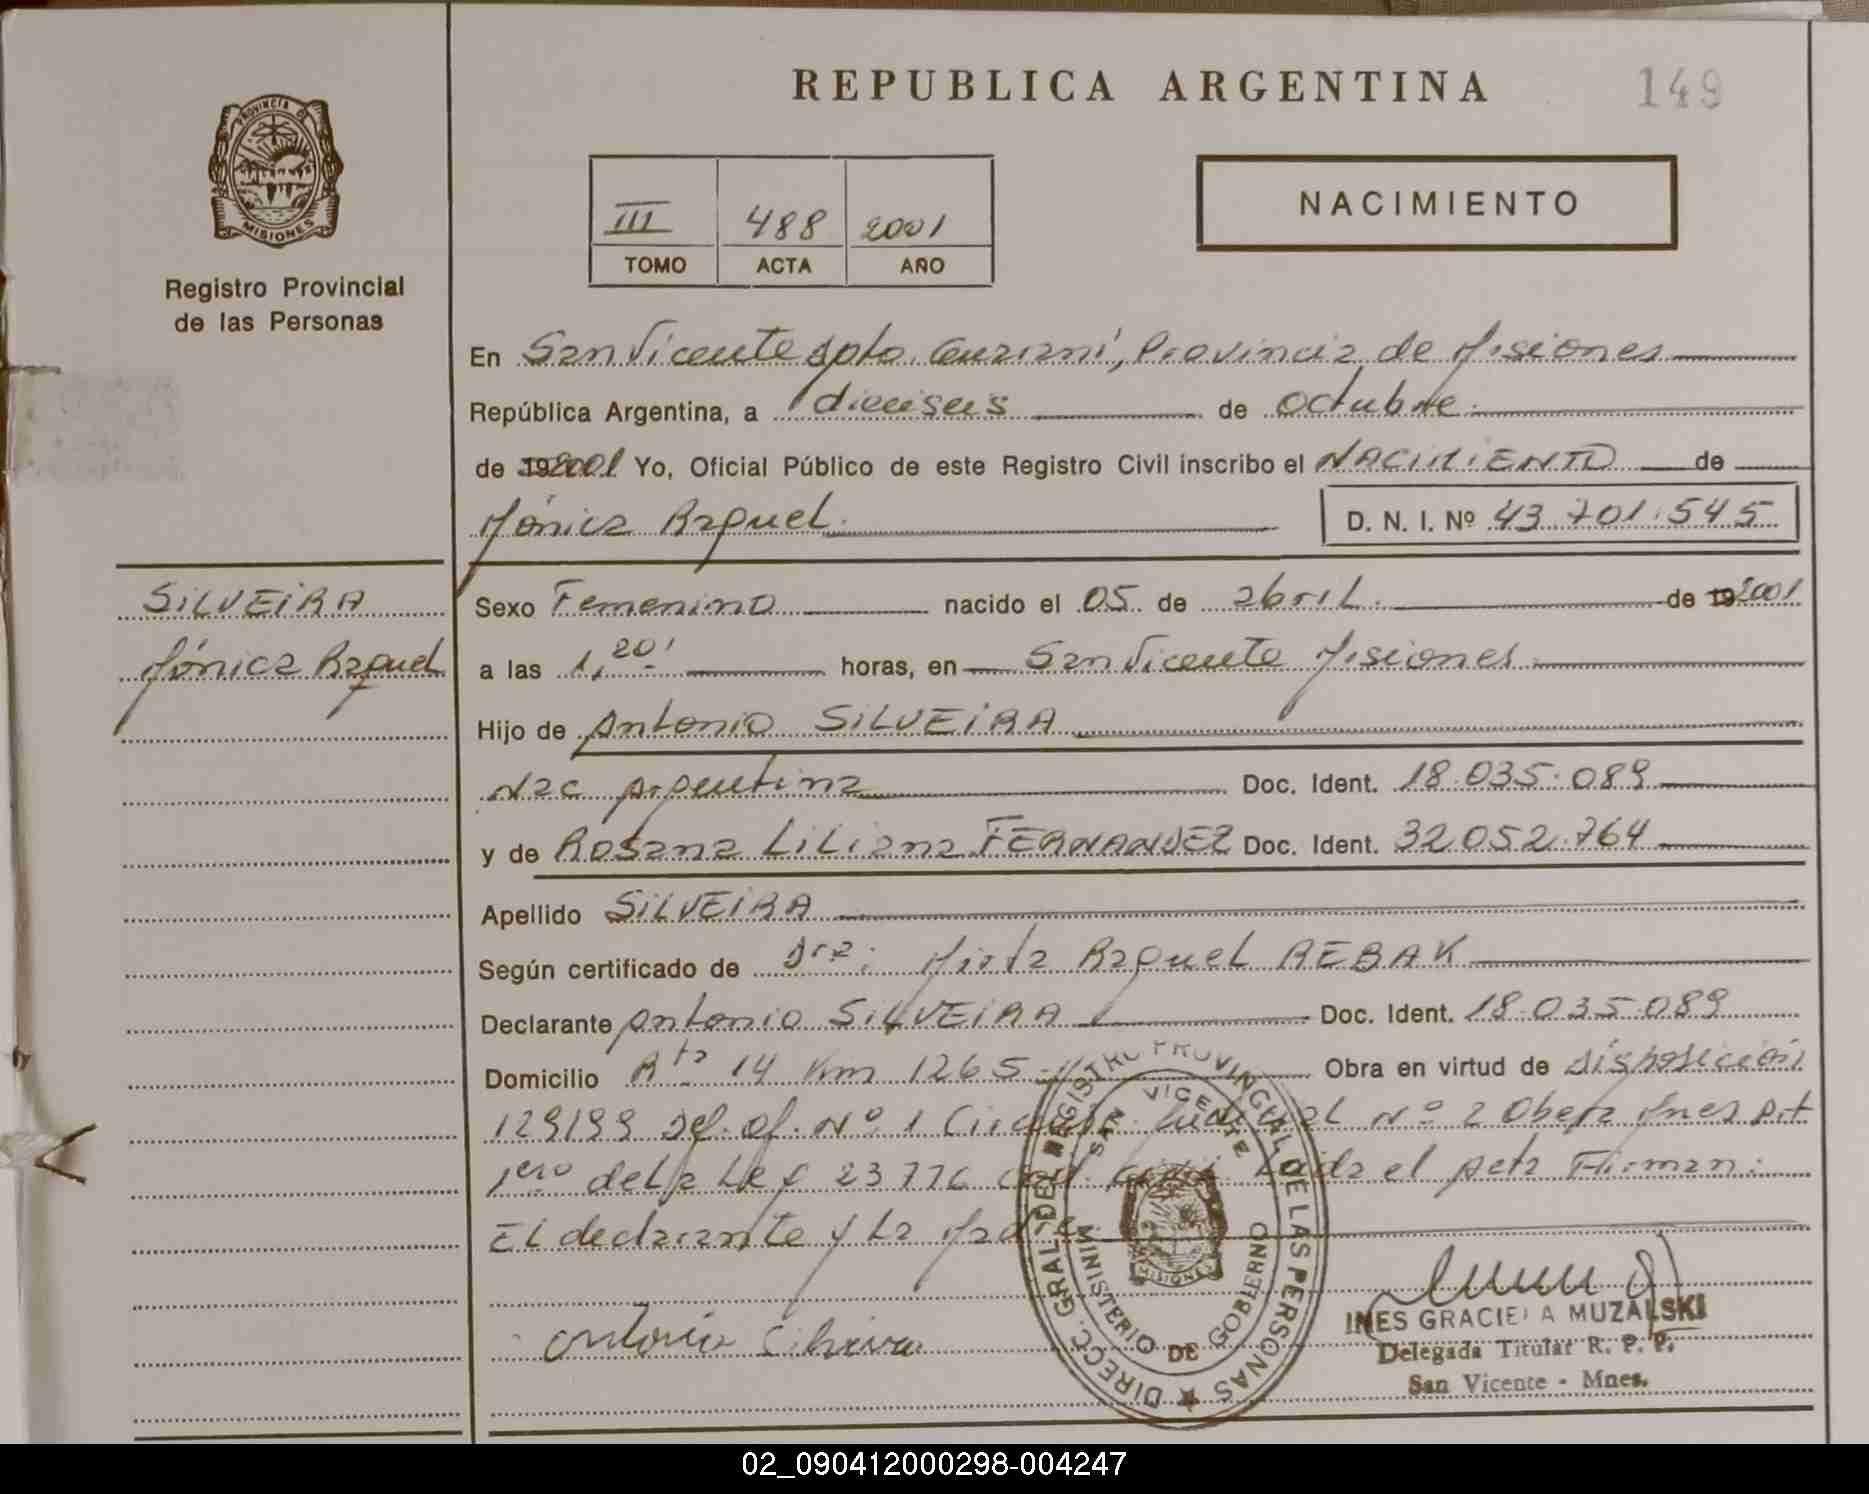 REPUBLICA ARGENTINA
149
PROVINCIA DE
MISIONES
Registro Provincial
de las Personas
III 488 2001
TOMO ACTA AÑO
NACIMIENTO
En San Vicente dpto. Guaraní, Provincia de Misiones
República Argentina, a dieciseis de octubre
de 192001 Yo, Oficial Público de este Registro Civil inscribo el NACIMIENTO de
Mónica Raquel
D. N. I. Nº 43.701.545
SILVEIRA
Mónica Raquel
Sexo Femenino nacido el 05 de abril de 192001
a las 1,20' horas, en San Vicente Misiones
Hijo de Antonio SILVEIRA
Nac Argentina Doc. Ident. 18.035.089
y de Rosana Liliana FERNANDEZ Doc. Ident. 32.052.764
Apellido SILVEIRA
Según certificado de Dra: Mirta Raquel REBAK
Declarante Antonio SILVEIRA Doc. Ident. 18.035.089
Domicilio Rta 14 Km 1265 Obra en virtud de disposición
129199 Def. of. Nº 1 Judicial Nº 2 Obera Mnes Art
1ero de la Ley 23776 Leida el Acta Firman:
El declarante y La Madre
Antonio Silveira
DIRECC. GRAL. DEL REGISTRO PROVINCIAL DE LAS PERSONAS
SAN VICENTE
MISIONES
MINISTERIO DE GOBIERNO
INES GRACIELA MUZALSKI
Delegada Titular R. P. P.
San Vicente - Mnes.
02_090412000298-004247